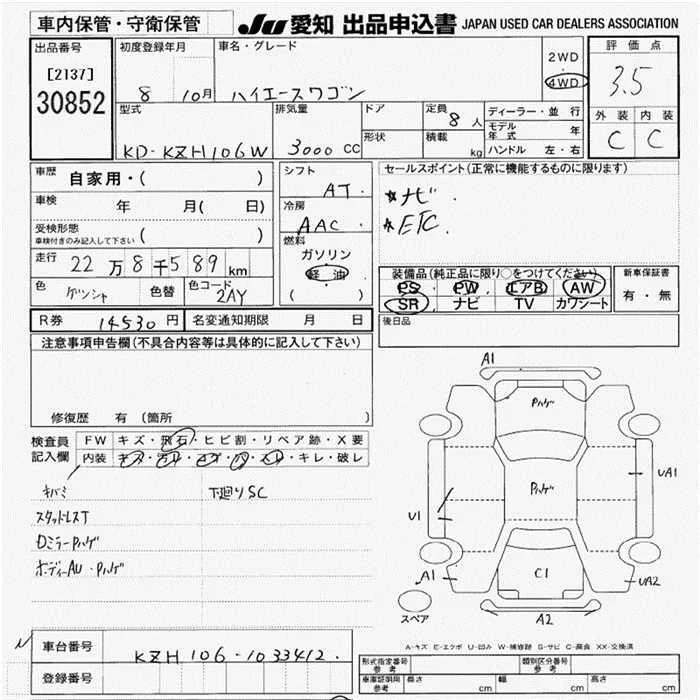 車内保管・守衛保管
JU 愛知 出品申込書 JAPAN USED CAR DEALERS ASSOCIATION
出品番号
[2137]
30852
初度登録年月
8 10月
車名・グレード
ハイエースワゴン
2WD
・
4WD
評価点
3.5
外装 内装
C C
型式
KD-KZH106W
排気量
3000 CC
ドア
形状
定員 8 人
積載 kg
ディーラー・並行
モデル年式 年
ハンドル 左・右
車歴 自家用・( )
車検 年 月( 日)
受検形態
車検付きのみ記入して下さい ( )
走行 22万8千589 km
色 色替 色コード 2AY
シフト
AT.
冷房
AAC.
燃料
ガソリン
軽油
( )
セールスポイント(正常に機能するものに限ります)
★ナビ.
★ETC.
装備品(純正品に限り○をつけてください)
PS PW エアB AW
SR ナビ TV カワシート
新車保証書
有・無
後日品
R券 14530 円 名変通知期限 月 日
注意事項申告欄(不具合内容等は具体的に記入して下さい)
修復歴 有 (箇所
検査員
記入欄
FW キズ・飛石・ヒビ割・リペア跡・X要
内装 キズ・汚レ・コゲ・穴・スレ・キレ・破レ
キバミ 下廻りSC
スタッドレスT
Dミラーハゲ
ボディーAU・Pハゲ
A1
Pハゲ
UA1
Pハゲ
U1
A1
C1
UA2
スペア
A2
A-キズ E-エクボ U-凹み W-補修跡 S-サビ C-腐食 XX-交換済
車台番号 KZH106-1033412.
登録番号
型式指定番号 参考 類別区分番号 参考
車庫証明用 参考 長さ cm 幅 cm 高さ cm